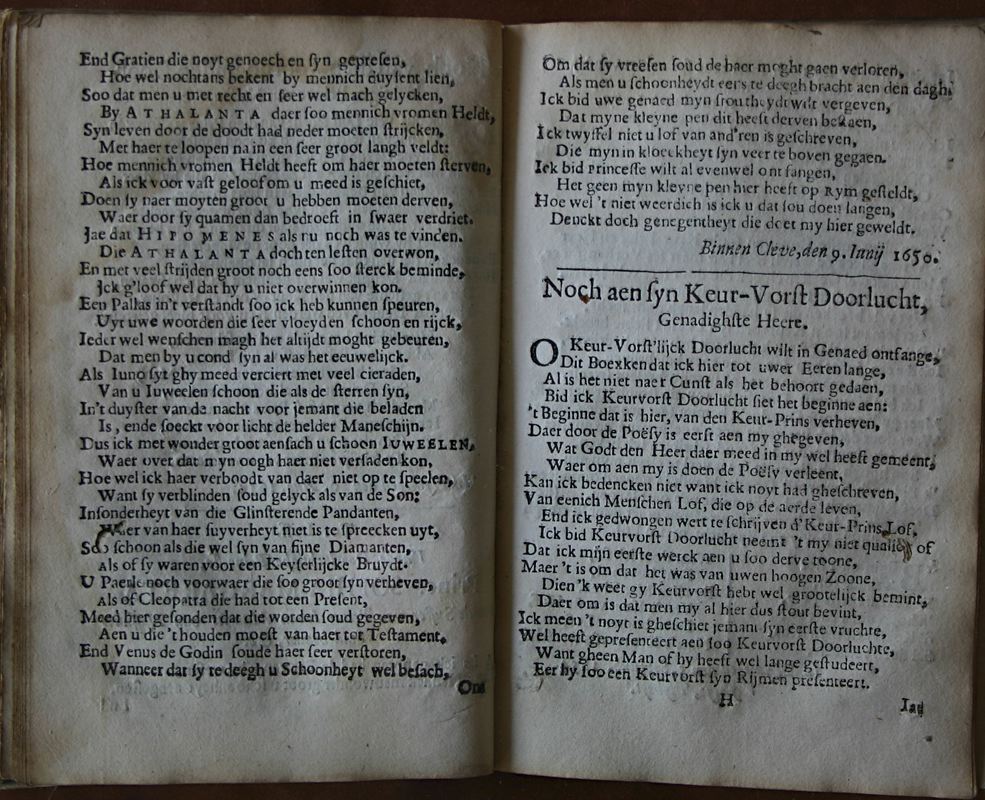 End Gratien die noyt genoech en syn gepresen,
Hoe wel nochtans bekent by mennich duysent lien,
Soo dat men u met recht en seer wel mach gelycken,
By ATHALANTA daer soo mennich vromen Heldt,
Syn leven door de doodt had neder moeten strijcken,
Met haer te loopen na in een seer groot langh veldt:
Hoe mennich vromen Heldt heeft om haer moeten sterven,
Als ick voor vast geloof om u meed is geschiet,
Doen sy naer moyten groot u hebben moeten derven,
Waer door sy quamen dan bedroeft in swaer verdriet.
Jae dat HIPOMENES als nu noch was te vinden.
Die ATHALANTA doch ten lesten overwon,
En met veel strijden groot noch eens soo sterck beminde,
Jck g'loof wel dat hy u niet overwinnen kon.
Een Pallas in't verstandt soo ick heb kunnen speuren,
Uyt uwe woorden die seer vloeyden schoon en rijck,
Ieder wel wenschen magh het altijdt moght gebeuren,
Dat men by u cond syn al was het eeuwelijck.
Als Iuno syt ghy meed verciert met veel cieraden,
Van u Iuweelen schoon die als de sterren syn,
In't duyster van de nacht voor jemant die beladen
Is, ende soeckt voor licht de helder Maneschijn.
Dus ick met wonder groot aensach u schoon IUWEELEN,
Waer over dat myn oogh haer niet versaden kon,
Hoe wel ick haer verboodt van daer niet op te speelen,
Want sy verblinden soud gelyck als van de Son:
Insonderheyt van die Glinsterende Pandanten,
Wier van haer suyverheyt niet is te spreecken uyt,
Soo schoon als die wel syn van fijne Diamanten,
Als of sy waren voor een Keyserlijcke Bruydt.
U Paerle noch voorwaer die soo groot syn verheven,
Als of Cleopatra die had tot een Present,
Meed hier gesonden dat die worden soud gegeven,
Aen u die 't houden moest van haer tot Testament.
End Venus de Godin soude haer seer verstoren,
Wanneer dat sy te deegh u Schoonheyt wel besach,
Om
Om dat sy vreesen soud de haer moght gaen verloren,
Als men u schoonheydt eers te deegh bracht aen den dagh.
Ick bid uwe genaed myn stoutheydt wilt vergeven,
Dat myne kleyne pen dit heeft derven bestaen,
Ick twyffel niet u lof van and'ren is geschreven,
Die myn in kloeckheyt syn veer te boven gegaen.
Ick bid Princesse wilt al evenwel ontfangen,
Het geen myn kleyne pen hier heeft op Rym gesteldt,
Hoe wel 't niet weerdich is ick u dat sou doen langen,
Denckt doch genegentheyt die doet my hier geweldt.
Binnen Cleve, den 9. Junij 1650.
Noch aen syn Keur-Vorst Doorlucht,
Genadighste Heere.
O Keur-Vorst'lijck Doorlucht wilt in Genaed ontfange,
Dit Boexken dat ick hier tot uwer Eeren lange,
Al is het niet naer Cunst als het behoort gedaen,
Bid ick Keurvorst Doorlucht siet het beginne aen:
't Beginne dat is hier, van den Keur-Prins verheven,
Daer door de Poësy is eerst aen my ghegeven,
Wat Godt den Heer daer meed in my wel heeft gemeent,
Waer om aen my is doen de Poësy verleent,
Kan ick bedencken niet want ick noyt had gheschreven,
Van eenich Menschen Lof, die op de aerde leven,
End ick gedwongen wert te schrijven d' Keur-Prins Lof,
Ick bid Keurvorst Doorlucht neemt 't my niet qualick of
Dat ick mijn eerste werck aen u soo derve toone,
Maer 't is om dat het was van uwen hoogen Zoone,
Dien 'k weet gy Keurvorst hebt wel grootelijck bemint,
Daer om is dat men my al hier dus stout bevint,
Ick meen 't noyt is gheschiet jemant syn eerste vruchte,
Wel heeft gepresenteert aen soo Keurvorst Doorluchte,
Want gheen Man of hy heeft wel lange gestudeert,
Eer hy soo een Keurvorst syn Rijmen presenteert.
H
Iae